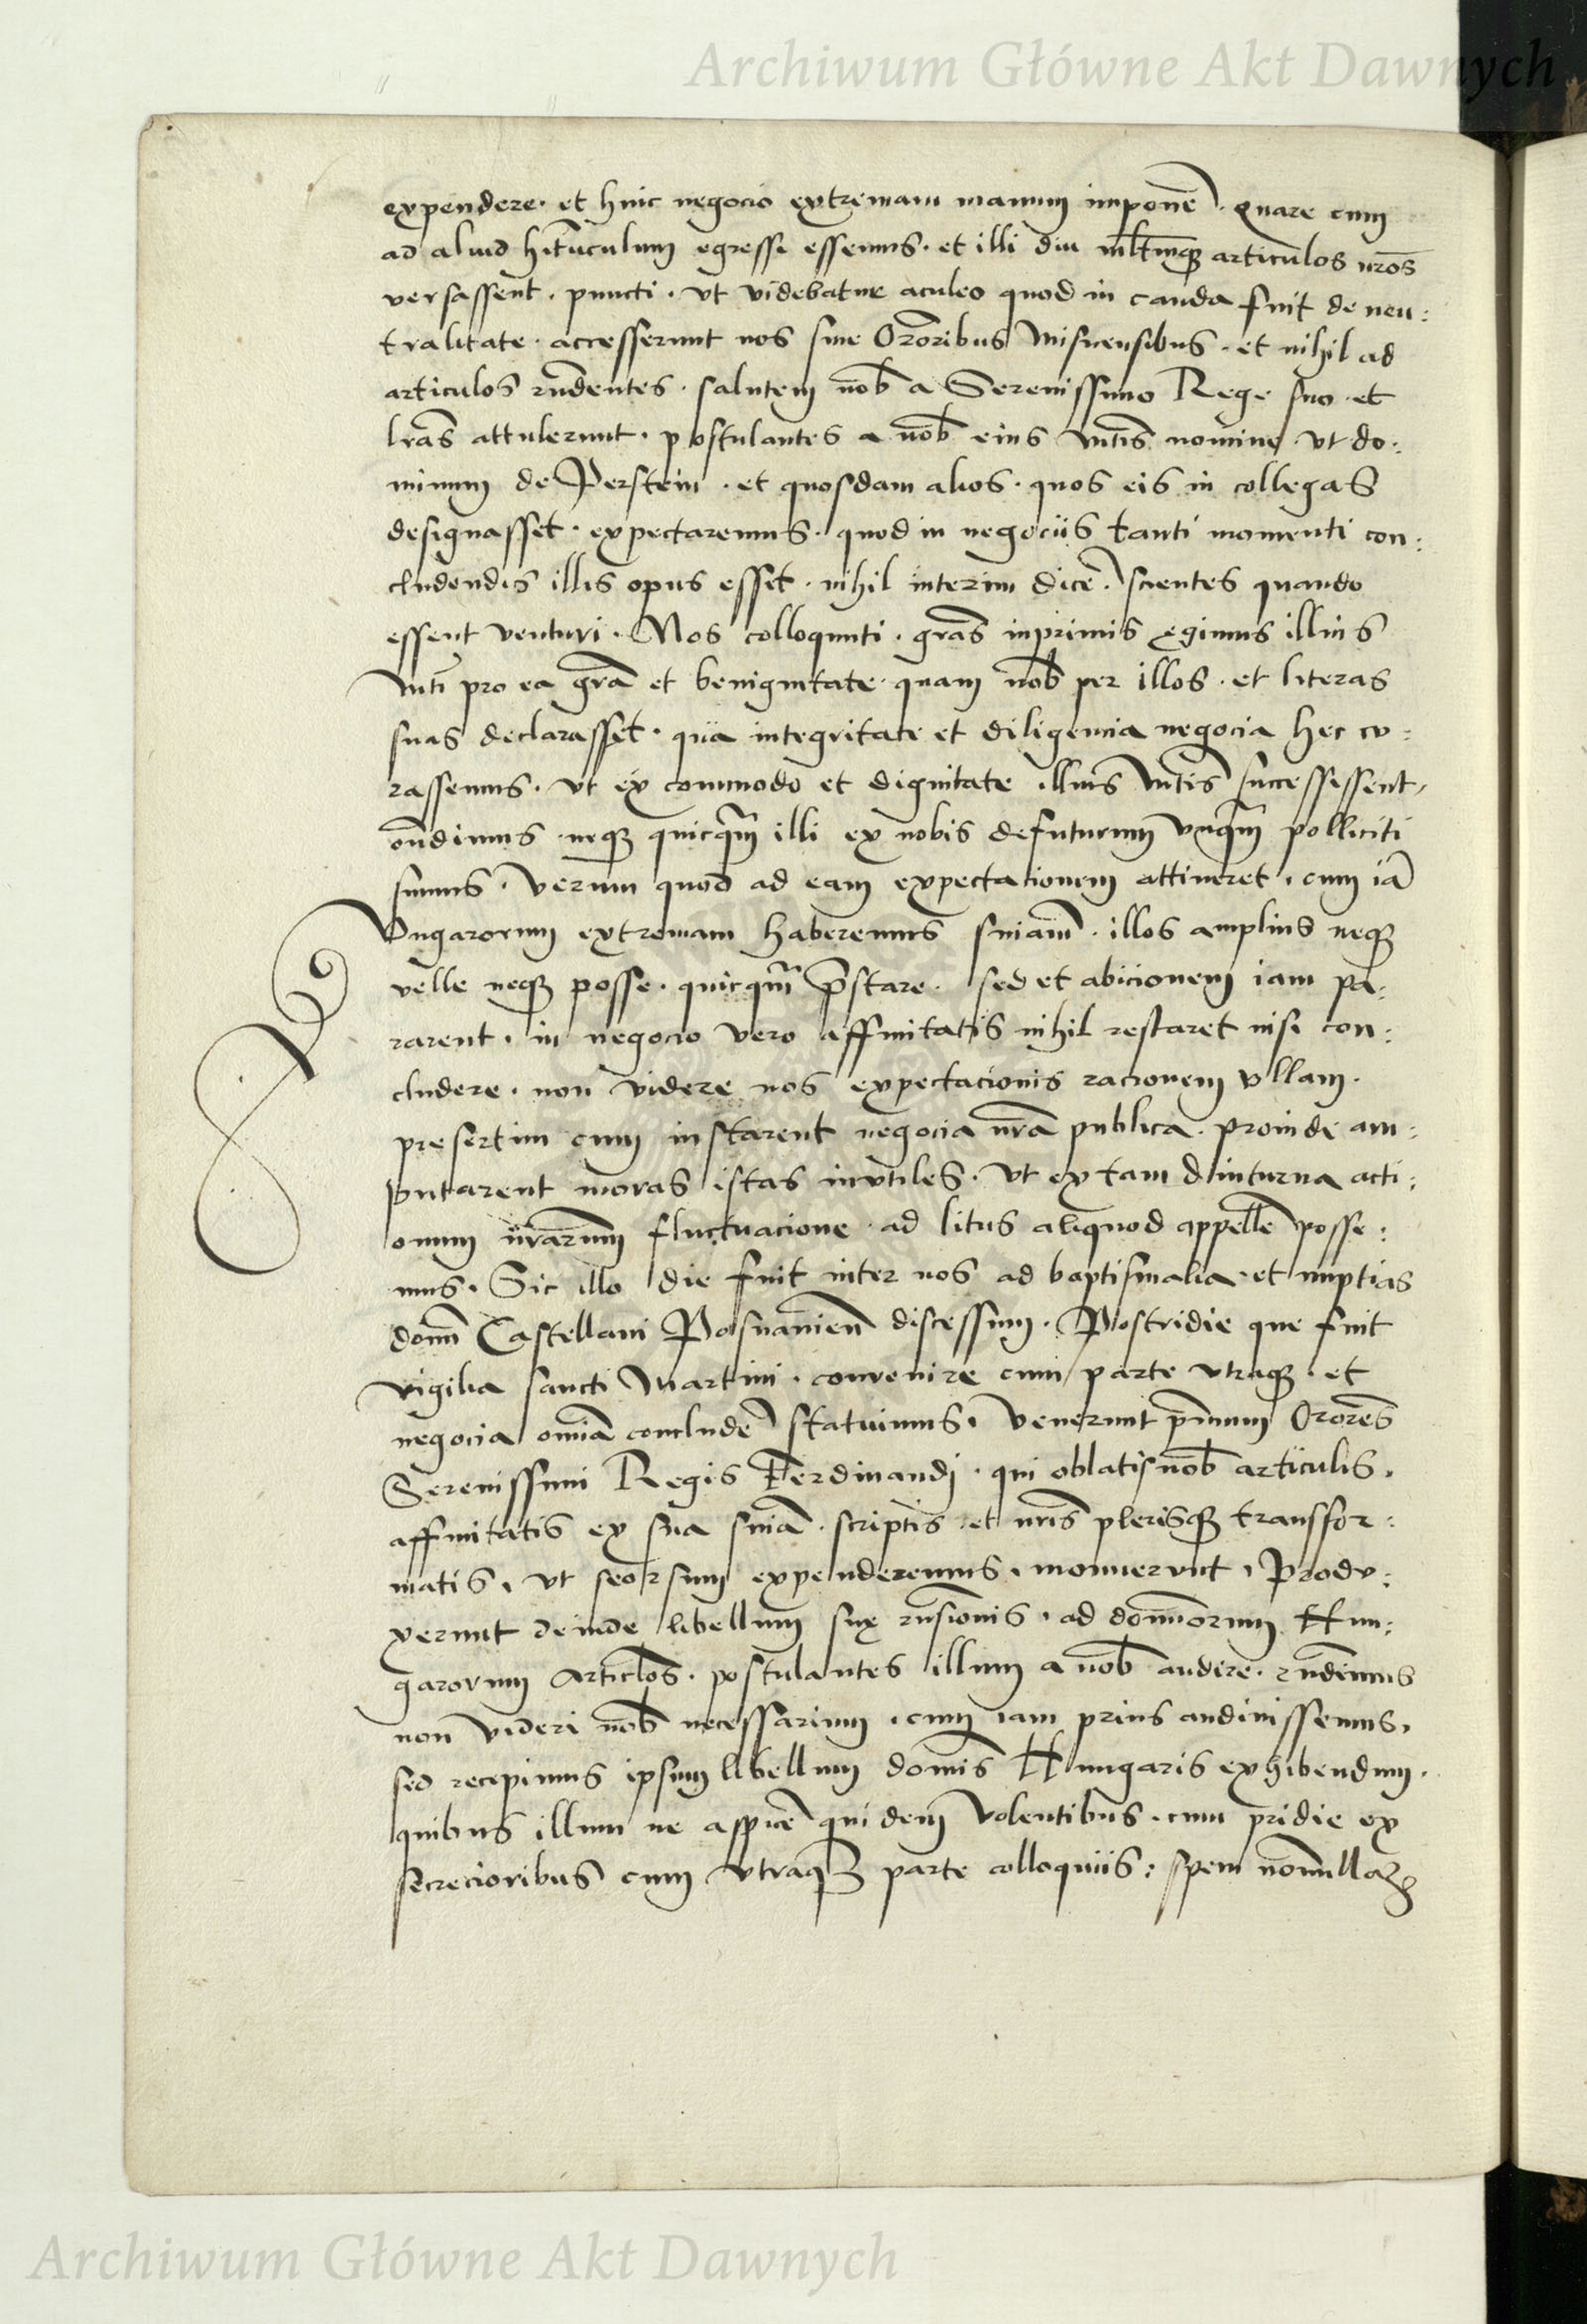 Archiwum Główne Akt Dawnych
expendere · et huic negocio extremam manum imponē · quare cum
ad aliud hītaculum egressi essemus · et illi diu mltmqꝫ articulos nr̄os
versassent · puncti · vt videbatur aculeo quod in cauda fuit de neu:
tralitate · accesserunt nos sine Ororibus Misnensibus · et nihil ad
articulos rn̄dentes · salutem nob̄ a Serenissimo Rege suo · et
lr̄as attulerunt · postulantes a nob̄ eius Mtis nomine vt do:
minum de Perstein · et quosdam alios · quos eis in collegas
designasset · expectaremus · quod in negociis tanti momenti con:
cludendis illis opus esset · nihil interim dicē · scientes quando
essent venturi · Nos colloqunti · gr̄as inprimis egimus illius
Mti pro ea gr̄a et benignitate · quam nob̄ per illos · et literas
suas declarasset · qua integritate et diligencia negocia hec cu:
rassemus · vt ex commodo et dignitate illius Mtis successissent,
on̄dimus · neqꝫ quicqm̄ illi ex nobis defuturum vnqm̄ polliciti
sumus · verum quod ad eam expectacionem attineret · cum iā
Vngarorum extremam haberemus sn̄iam · illos amplius neqꝫ
velle neqꝫ posse · quicqm̄ p̄stare · sed et abicionem iam pa:
rarent · in negocio vero affinitatis nihil restaret nisi con:
cludere · non videre nos expectacionis racionem vllam ·
presertim cum instarent negocia nr̄a publica · proinde am:
putarent moras istas invtiles · vt ex tam diuturna acti:
onum nr̄arum fluctuacione · ad litus aliquod appellē posse:
mus · Sic illo die fuit inter nos ad baptismalia · et nuptias
domī Castellani Posnanien̄ discessum · Postridie que fuit
vigilia sancti Martini · convenire cum parte vtraqꝫ · et
negocia omīa concludē statuimus · Venerunt pm̄um Orores
Serenissimi Regis Ferdinandi · qui oblatis nob̄ articulis ·
affinitatis ex sua sn̄ia · scriptis · et nr̄is plerisqꝫ transfor:
matis · vt seorsum expenderemus · monuerunt · Produ:
xerunt deinde libellum suę rn̄sionis · ad domīorum Hun:
garorum Articlos · postulantes illum a nob̄ audire · rn̄dimus
non videri nob̄ necessarium · cum iam prius audivissemus,
sed recipimus ipsum libellum domīs Hungaris exhibendum ·
quibus illum ne aspicē quidem volentibus · cum pridie ex
secrecioribus cum vtraqꝫ parte colloquiis: spem nonnullaꝫ
Archiwum Główne Akt Dawnych